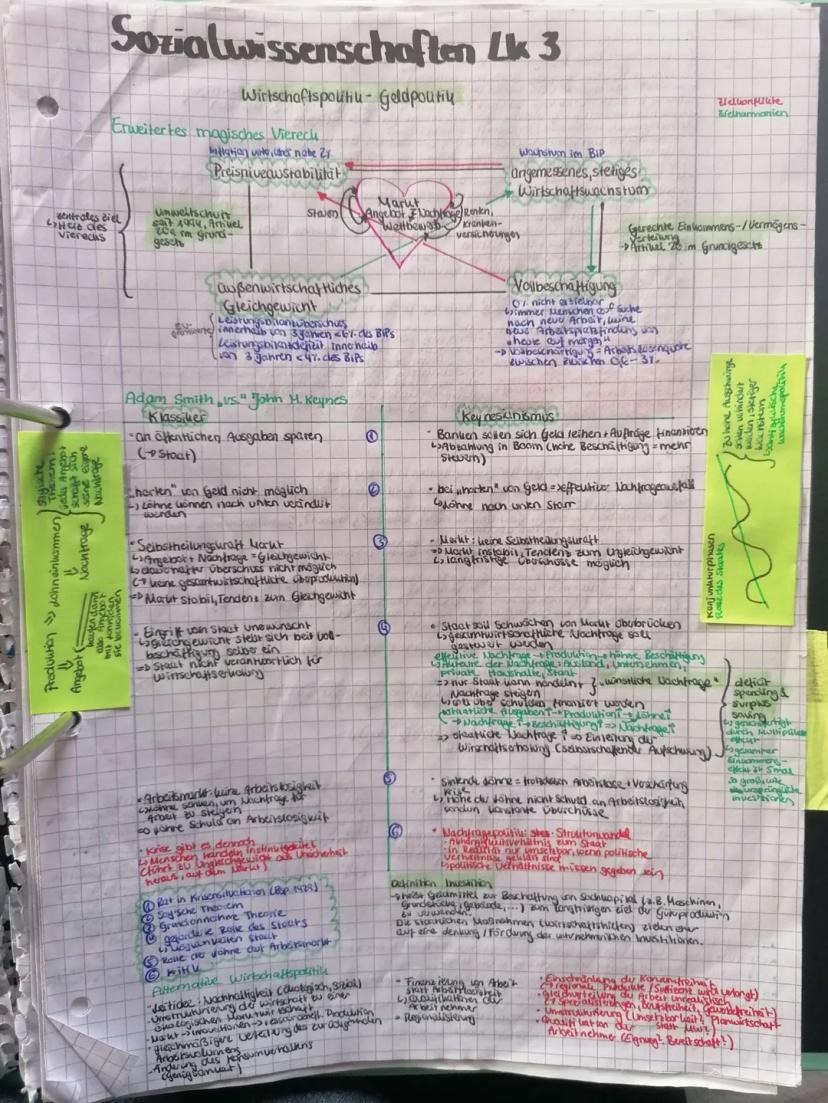 Sozialwissenschaften Lk 3
Wirtschaftspolitik - Geldpolitik
Zielkonflikte
Zielharmonien
Erweitertes magisches Viereck
Inflation unter, aber nahe 2%
Preisniveaustabilität
Wachstum im BIP
angemessenes, stetiges
Wirtschaftswachstum
zentrales Ziel
Umweltschutz
seit 1994, Artikel
20a im Grund-
gesetz
Markt
Angebot + Nachfrage
Wettbewerb
Steuern
Renten,
Kranken-
versicherungen
Gerechte Einkommens-/Vermögens-
verteilung
→ Artikel 20 im Grundgesetz
außenwirtschaftliches
Gleichgewicht
Leistungsbilanzüberschuss
innerhalb von 3 Jahren <6% des BIPs
Leistungsbilanzdefizit innerhalb
von 3 Jahren <4% des BIPs
Vollbeschäftigung
0% nicht erzielbar
↳ immer Menschen auf Suche
nach neuer Arbeit, keine
neue Arbeitsplatzfindung von
"heute auf morgen"
→ Vollbeschäftigung = Arbeitslosenquote
zwischen
Adam Smith "vs." John M. Keynes
Klassiker
Keynesianismus
· an öffentlichen Ausgaben sparen
(→ Staat)
①
· Banken sollen sich Geld leihen + Aufträge finanzieren
↳ Abzahlung in Boom (hohe Beschäftigung = mehr
Steuern)
"horten" von Geld nicht möglich
→ Löhne können nach unten verändert
werden
②
· bei "horten" von Geld => effektiver Nachfrageausfall
↳ Löhne nach unten starr
· Selbstheilungskraft Markt
↳ Angebot + Nachfrage = Gleichgewicht
↳ dauerhafter Überschuss nicht möglich
(→ keine gesamtwirtschaftliche Überproduktion)
=> Markt stabil, Tendenz zum Gleichgewicht
③
· Markt: keine Selbstheilungskraft
=> Markt instabil, Tendenz zum Ungleichgewicht
↳ langfristige Überschüsse möglich
· Eingriff von Staat unerwünscht
↳ Gleichgewicht stellt sich bei Voll-
beschäftigung selbst ein
=> Staat nicht verantwortlich für
Wirtschaftserholung
④
· Staat soll Schwächen von Markt überbrücken
↳ gesamtwirtschaftliche Nachfrage soll
gesteuert werden
effektive Nachfrage → Produktion → höhere Beschäftigung
↳ Akteure der Nachfrage: Ausland, Unternehmen,
private Haushalte, Staat
=> nur Staat kann handeln +
Nachfrage steigern
"künstliche Nachfrage"
↳ kann über Schulden finanziert werden
staatliche Ausgaben↑ → Produktion↑ → Löhne↑
→ Nachfrage↑ → Beschäftigung↑ => Nachfrage↑
=> staatliche Nachfrage↑ => Einleitung der
Wirtschaftserholung (selbstschaffender Aufschwung)
deficit
spending &
surplus
saving
↳ gerechtfertigt
durch Multiplikator
effekt
↳ gesamter
Einkommens-
effekt ist 5mal
so groß, wie
ursprüngliche
Investitionen
· Arbeitsmarkt: keine Arbeitslosigkeit
↳ Löhne senken, um Nachfrage für
Arbeit zu steigern
=> Löhne Schuld an Arbeitslosigkeit
⑤
· Sinkende Löhne = trotzdem Arbeitslose + Verschärfung
Krise
↳ Höhe der Löhne nicht Schuld an Arbeitslosigkeit,
sondern konstante Überschüsse
· Krise gibt es dennoch
↳ Menschen handeln instinktgeleitet
(führt zu Ungleichgewicht aus Unsicherheit
heraus, auf dem Markt)
⑥
· Nachfragepolitik: Strukturwandel
· Abhängigkeitsverhältnis zum Staat
· in Realität nur umsetzbar, wenn politische
Verhältnisse geklärt sind
↳ politische Verhältnisse müssen gegeben sein
① Rat in Krisensituationen (Bsp. 1929)
② Say'sche Theorem
③ Grundannahme Theorie
④ geforderte Rolle des Staats
⑤ Rolle der Löhne auf Arbeitsmarkt
⑥ Kritik
Definition Investition
Geldmittel zur Beschaffung von Sachkapital (z.B. Maschinen,
Grundstücke, Gebäude,...) zum langfristigen Ziel der Güterproduktion
zu verwenden.
Die staatlichen Maßnahmen (Wirtschaftshilfen) zielen eher
auf eine Lenkung/Förderung der unternehmerischen Investitionen.
Alternative Wirtschaftspolitik
· Leitidee: Nachhaltigkeit (ökologisch, sozial)
· Umstrukturierung der Wirtschaft zu einer
ökologischen Kreislaufwirtschaft
· gleichmäßigere Verteilung des
Arbeitsvolumens
· Änderung des Konsumverhaltens
(Genügsamkeit)
· Finanzierung von Arbeit
statt Arbeitslosigkeit
↳ Qualifikationen der
Arbeitnehmer
· Regionalisierung
· Einschränkung der Konsumfreiheit
(→ regionale Produkte / Suffizienz wird verlangt)
· Gleichverteilung der Arbeit unrealistisch
(→ Spezialisierungen, Berufsfreiheit, Gewerbefreiheit)
· Umstrukturierung (Umsetzbarkeit? Planwirtschaft
statt MW?)
· Qualifikation der
Arbeitnehmer (Eignung? Bereitschaft?)
Produktion => Lohneinkommen
Angebot
Nachfrage
Say'sche
Theorem:
jedes Angebot
schafft sich
seine eigene
Nachfrage
zu hohe Ausschläge
sollen verhindert
werden, stetiges
Wachstum
Konjunkturphasen
Rolle des Staates